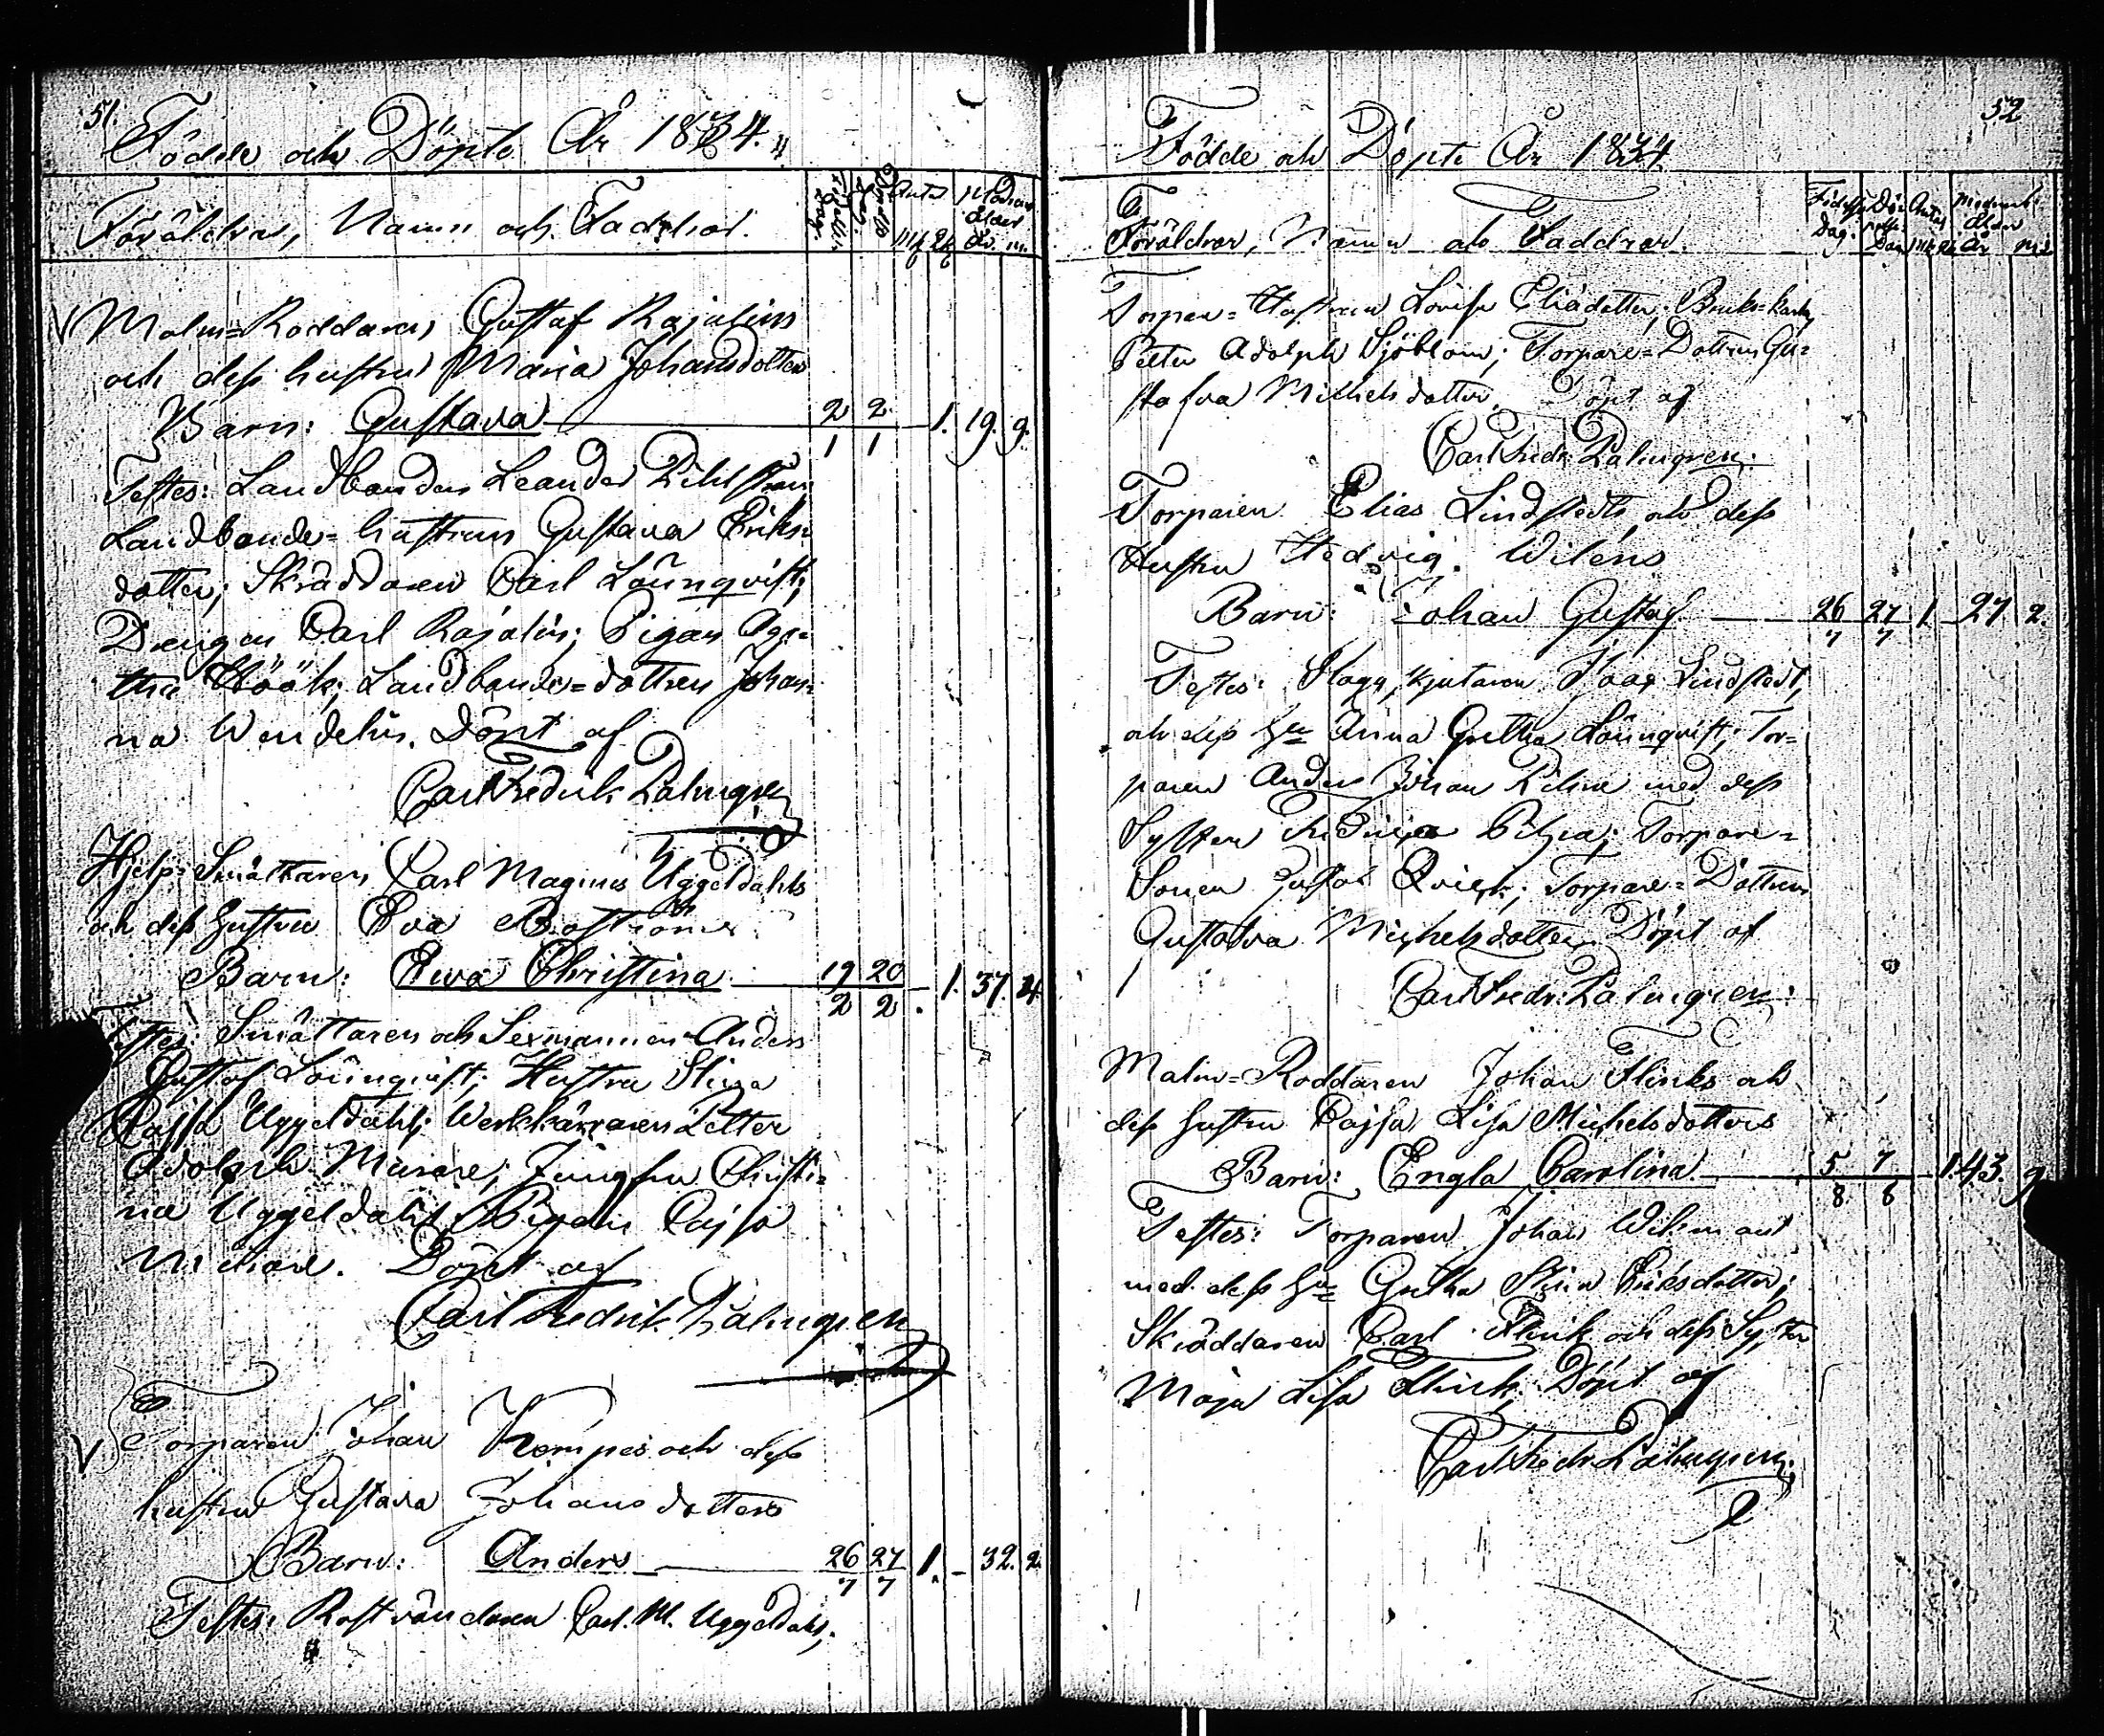 51.
Födde och Döpte År 1834.
Föräldrar, Namn och Faddrar.
Födelse Dag. Döpelse Dag. Antal Mk Qk Modrens Ålder År. m.
Malm-Roddaren Gustaf Rajalins
och dess hustru Maria Johansdotters
Barn: Gustava 2/1 2/1 1. 19. 9.
Testes: Landbonden Leander Pihlström
Landbonde-hustrun Gustava Eriks-
dotter; Skräddaren Carl Lönnqvist;
Drengen Carl Rajalin; Pigan Aga-
tha Höök; Landbonde-dottren Johan-
na Wendelin. Döpt af
Carl Fredrik Palmgren
Hjelp-Smältaren Carl Magnus Uggeldahls
och dess hustru Eva Boströms
Barn: Ewa Christina 19/2 20/2 1. 37. 4
Testes: Smältaren och Sexmannen Anders
Gustaf Lönnqvist; Hustru Stina
Cajsa Uggeldahl; Werkkarlen Petter
Adolph Murare; Jungfru Christi-
na Uggeldahl; Pigan Cajsa
Döpt af
Carl Fredrik Palmgren
Torparen Johan Kempes och dess
hustru Gustava Johansdotters
Barn: Anders 26/7 27/7 1. - 32. 2
Testes: Rostvändaren Carl. M. Uggeldahl;
52
Födde och Döpte År 1834
Föräldrar, Namn och Faddrar.
Födelse Dag. Döpelse Dag Antal Mk Qk Modrens Ålder År Ms
Torpare-Hustrun Lovisa Eliædotter; Bruks-karlen
Petter Adolph Sjöblom; Torpare-Dottren Gu-
stafva Michelsdotter. Döpt af
Carl Fredr. Palmgren.
Torparen Elias Lindstedts och dess
Hustru Hedvig Wiléns
Barn: Johan Gustaf 26/7 27/7 1 27. 2.
Testes: Slaggskjutaren Isaac Lindstedt,
och dess Hu Anna Gretha Lönnqvist; Tor-
paren Anders Johan med dess
Syster Torpare-
Sonen Gustaf Qvick; Torpare-Dottren
Gustafva Michelsdotter Döpt af
Carl Fredr. Palmgren.
Malm-Roddaren Johan Flinks och
dess hustru Cajsa Lisa Michelsdotters
Barn: Engla Carolina 5/8 7/8 1. 43. 9
Testes: Torparen Johan
med dess Hu Gretha Stina Eriksdotter;
Skräddaren Carl Flink och dess Syster
Maja Lisa Flink. Döpt af
Carl Fredr. Palmgren.